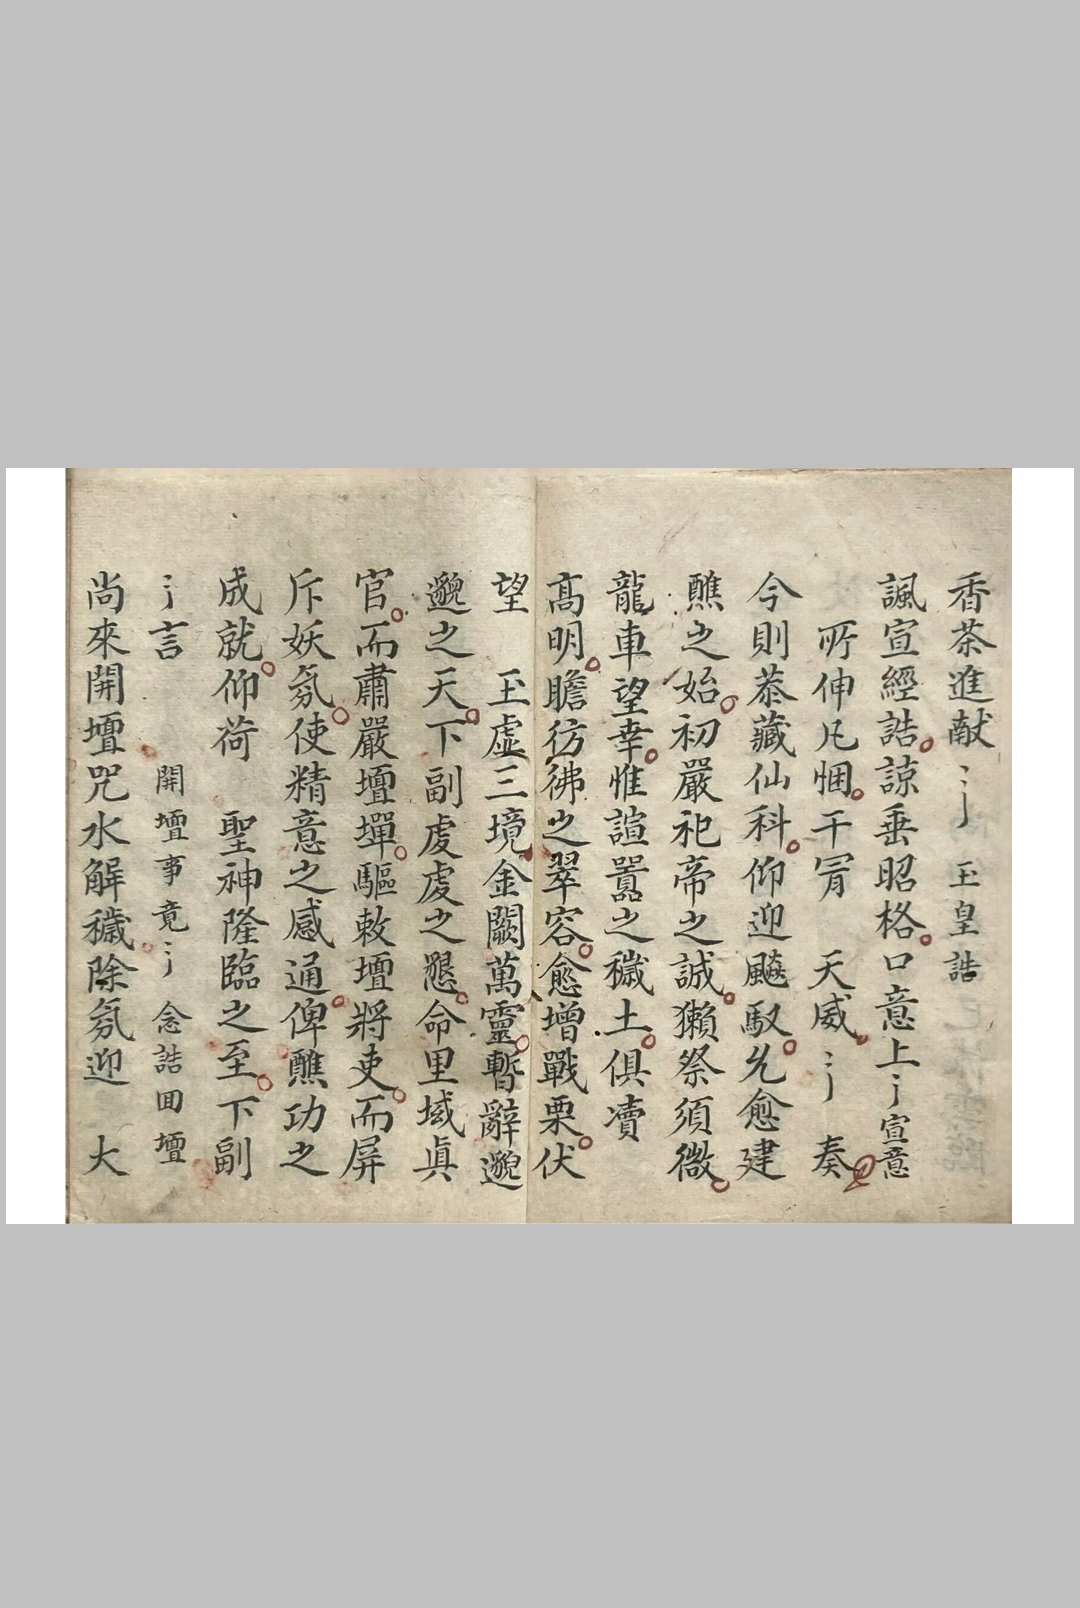 香茶進献〻 玉皇誥
諷宣經誥諒垂昭格口意上〻宣意
所伸凡悃干冐 天威〻 奏
今則恭藏仙科仰迎飈馭㕥愈建
醮之始初嚴祀帝之誠獺祭須微
龍車望幸惟諠囂之穢土俱凟
高明瞻彷彿之翠容愈增戰栗伏
望 玉虛三境金闕萬靈暫辭邈
邈之天下副虔虔之懇命里域眞
官而肅嚴壇墠驅敕壇將吏而屏
斥妖氛使精意之感通俾醮功之
成就仰荷 聖神隆臨之至下副
〻言 開壇事竟〻 念誥囬壇
尚來開壇咒水解穢除氛迎 大